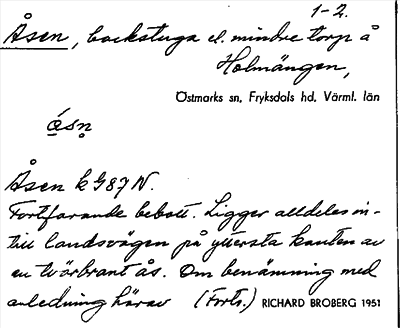 1-2.
Åsen, backstuga el. mindre torp å
Holmängen,
Östmarks sn, Fryksdals hd, Värml. län
å̀sn̥
Åsen k G87 N.
Fortfarande bebott. Ligger alldeles in-
till landsvägen på yttersta kanten av
en tvärbrant ås. Om benämning med
anledning härav (Forts.) RICHARD BROBERG 1951